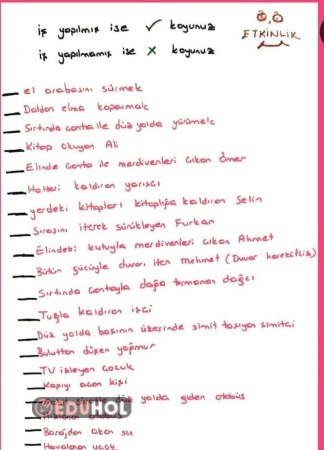 iş yapılmış ise ✓ koyunuz
iş yapılmamış ise × koyunuz
ETKİNLİK
el arabasını sürmek
Daldan elma koparmak
Sırtında çanta ile düz yolda yürümek
Kitap okuyan Ali
Elinde çanta ile merdivenleri çıkan Ömer
Halteri kaldıran yarışçı
yerdeki kitapları kitaplığa kaldıran Selin
Sırasını iterek sürükleyen Furkan
Elindeki kutuyla merdivenleri çıkan Ahmet
Bütün gücüyle duvarı iten Mehmet (Duvar hareketsiz)
Sırtında çantayla dağa tırmanan dağcı
Tuğla kaldıran işçi
Düz yolda başının üzerinde simit taşıyan simitçi
Buluttan düşen yağmur
TV izleyen çocuk
Kapıyı açan kişi
düz yolda giden otobüs
EDUHOL
otobüs
Barajdan akan su
Havalanan uçak